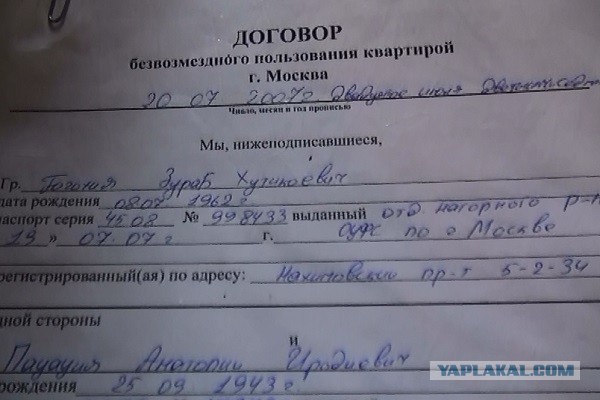 ДОГОВОР
безвозмездного пользования квартирой
г. Москва
20 07 2007г. Двадцатое июля
Число, месяц и год прописью
Мы, нижеподписавшиеся,
Гр. Зураб
дата рождения 08.07 1962г.
паспорт серия 4508 № 998433 выданный отд. Нагорного р-н
19 » 07.07 г г. по г Москве
регистрированный(ая) по адресу: Нахимовский пр-т 5-2-34
дной стороны
и
Анатолий Иродиевич
рождения 25 09 1943 г.
YAPLAKAL.COM